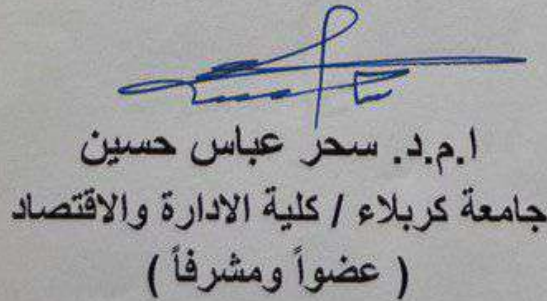 ا.م.د. سحر عباس حسين
جامعة كربلاء / كلية الادارة والاقتصاد
( عضواً ومشرفاً )